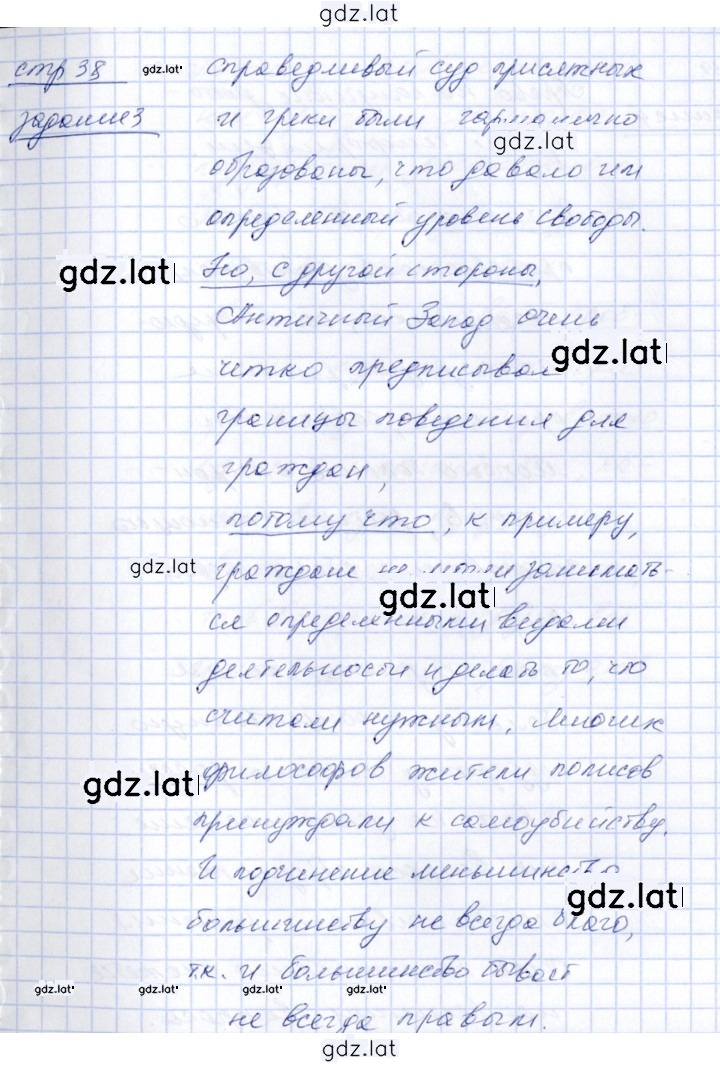 gdz.lat
стр 38 gdz.lat справедливый суд присяжных
задание 3 и греки были гармонично
gdz.lat
образованы, что давало им
определенный уровень свободы.
gdz.lat Но, с другой стороны,
Античный Запад очень
gdz.lat
четко предписывал
границы поведения для
граждан,
потому что, к примеру,
gdz.lat граждане занимать-
gdz.lat
ся определенными видами
деятельности и делать то, что
считали нужным. Многих
gdz.lat философов жители полисов
принуждали к самоубийству.
И подчинение меньшинства
gdz.lat
большинству не всегда благо,
т.к. и большинство бывает
gdz.lat gdz.lat gdz.lat gdz.lat gdz.lat
не всегда правым.
gdz.lat